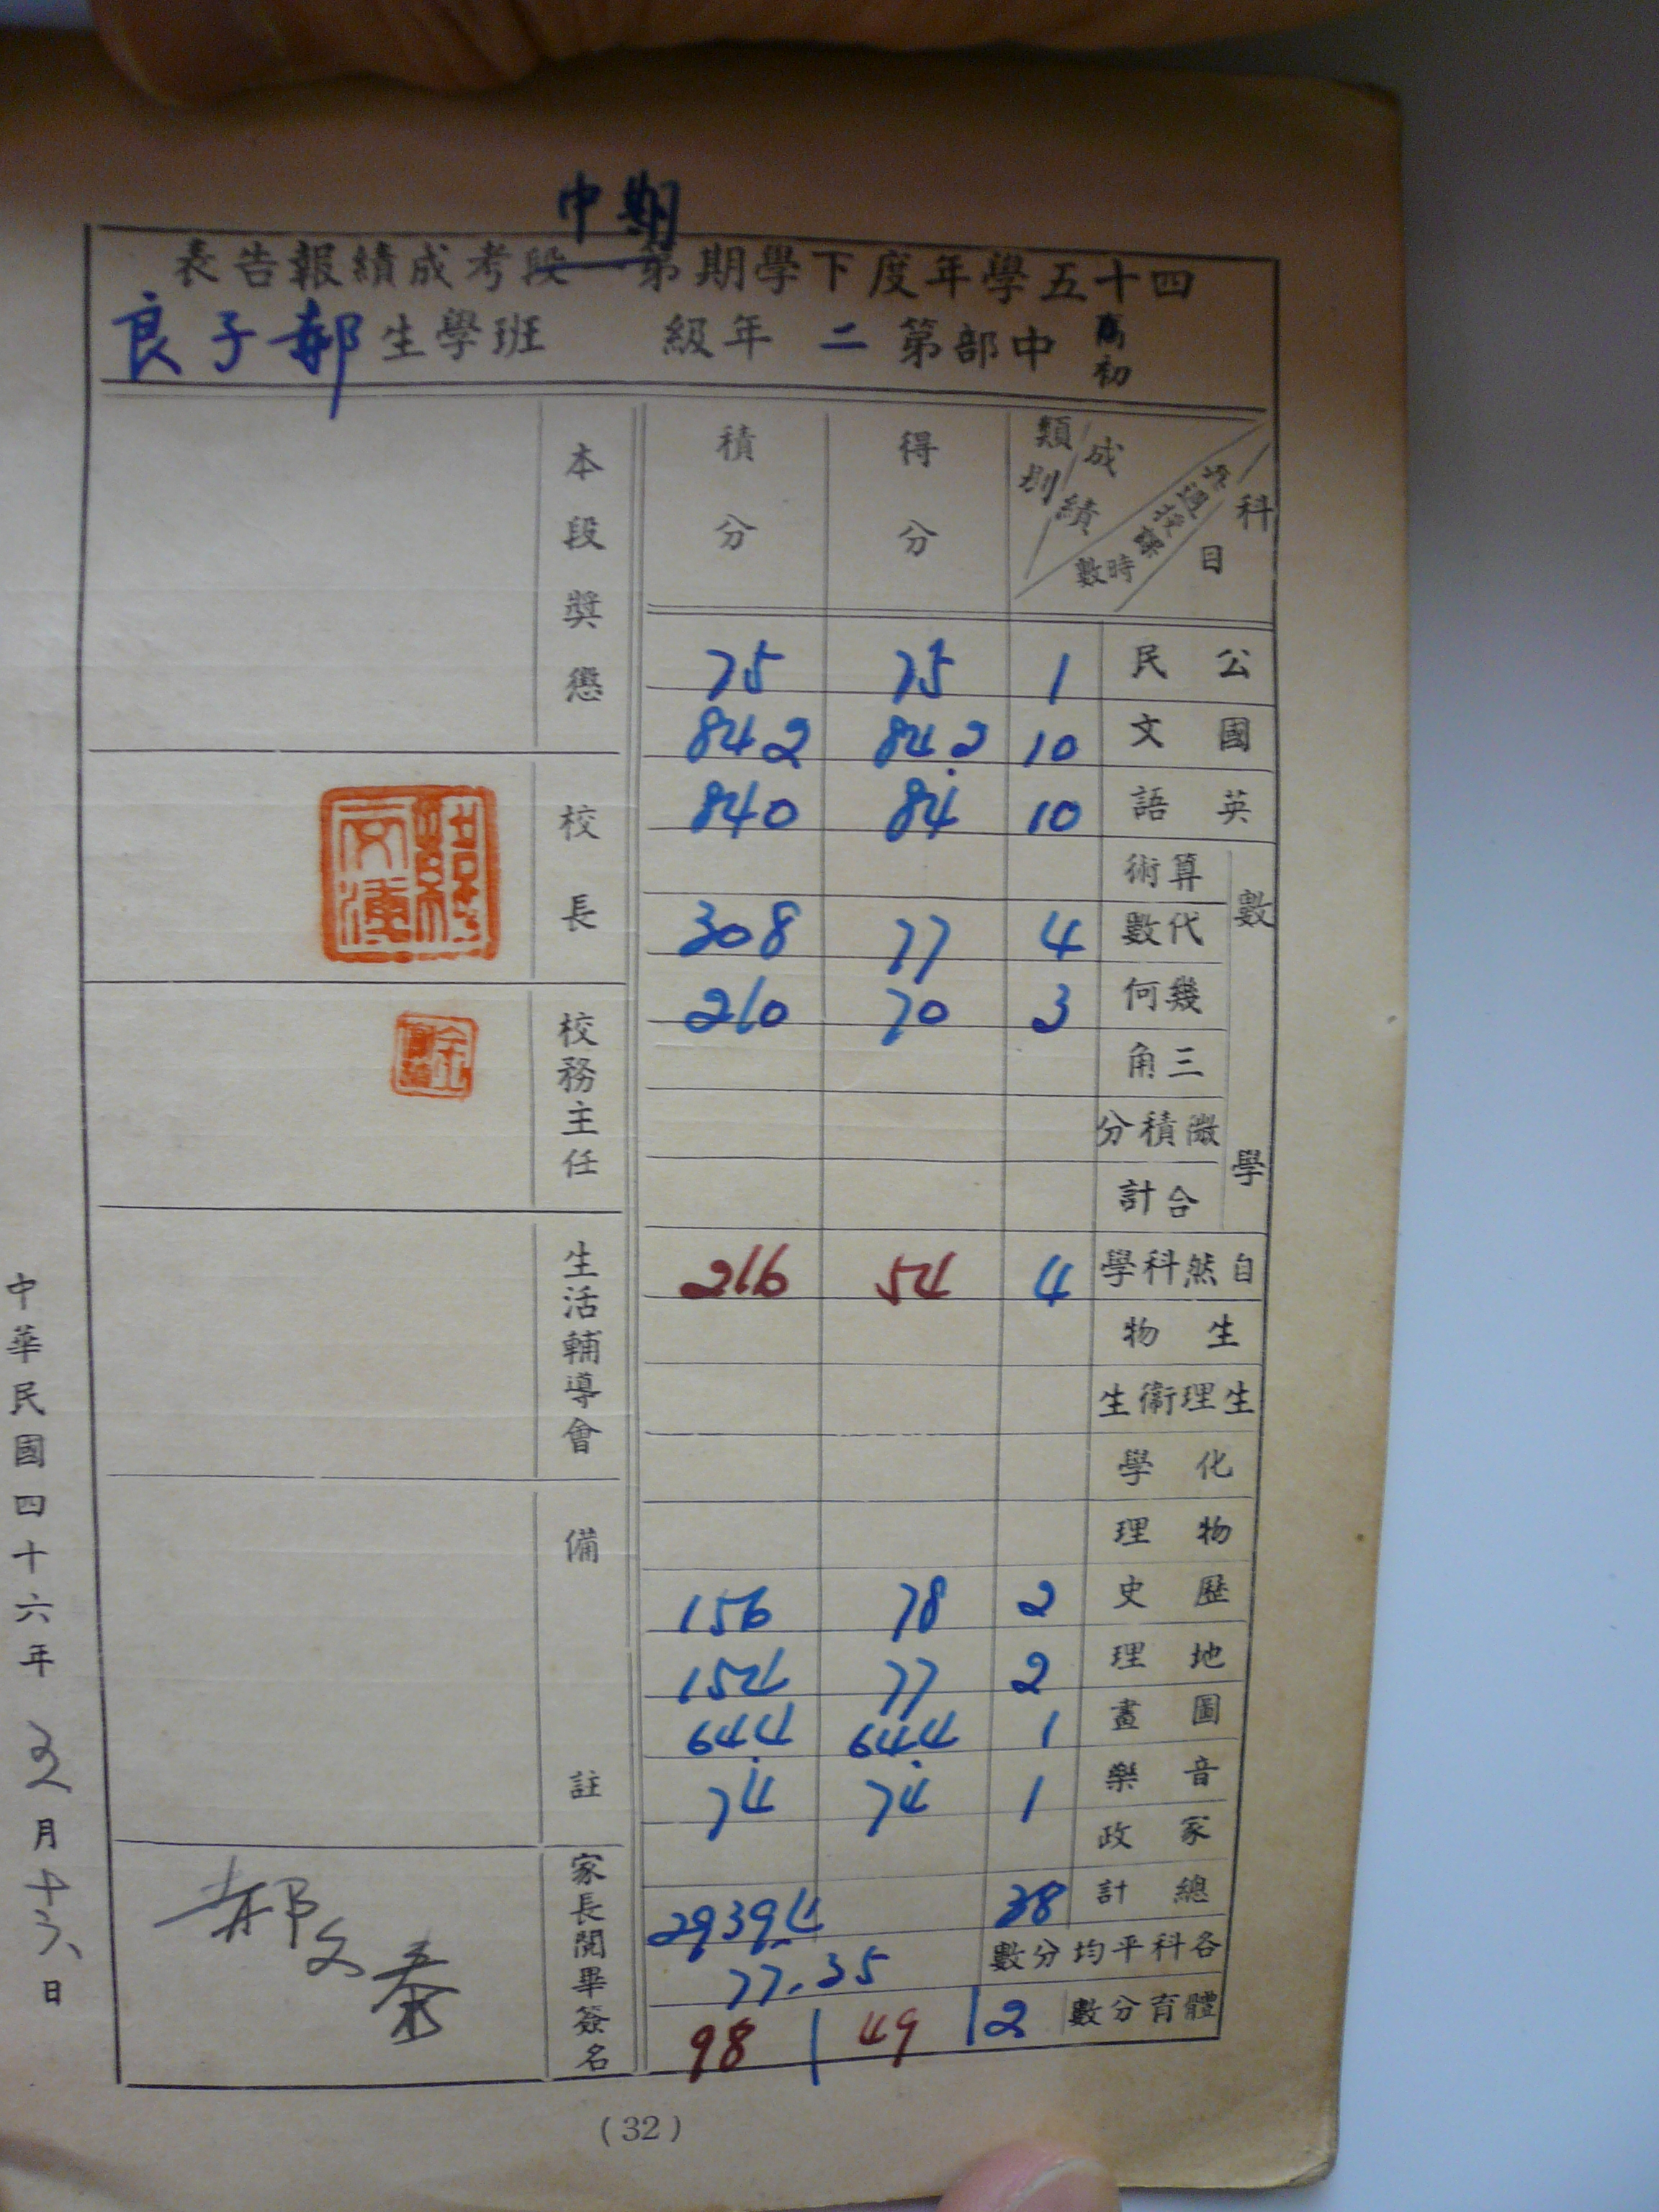 中期
四十五學年度下學期第一段考成績報告表
高初中部第二年級 班學生郝子良
科目 每週授課時數 成績類別 得分 積分
公民 1 75 75
國文 10 84.2 842
英語 10 84 840
數學
算術
代數 4 77 308
幾何 3 70 210
三角
微積分
合計
自然科學 4 54 216
生物
生理衞生
化學
物理
歷史 2 78 156
地理 2 77 154
圖畫 1 64.4 64.4
音樂 1 74 74
家政
總計 38 2939.4
各科平均分數 77.35
體育分數 2 49 98
本段獎懲
校長
校務主任
生活輔導會
備註
家長閱畢簽名 郝文泰
中華民國四十六年 月十六日
(32)